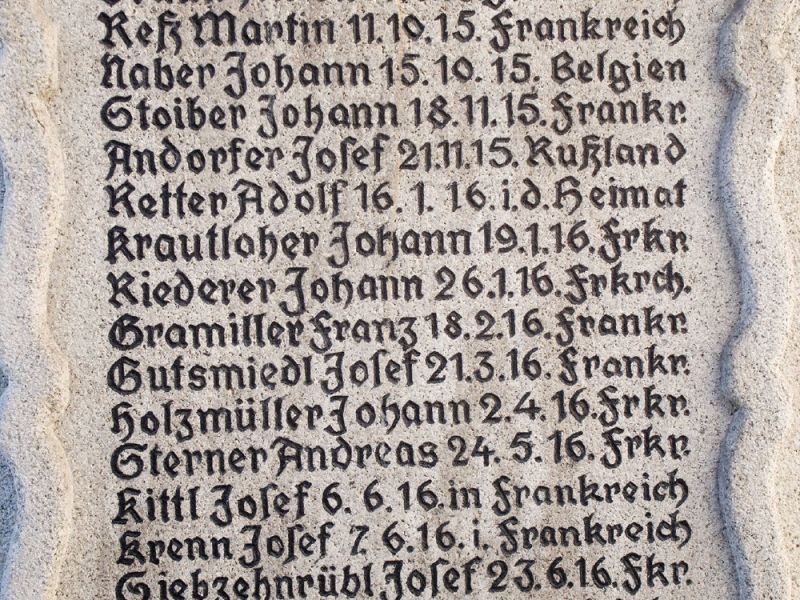 Reß Martin 11.10.15. Frankreich
Naber Johann 15.10.15. Belgien
Stoiber Johann 18.11.15. Frankr.
Andorfer Josef 21.11.15. Rußland
Retter Adolf 16.1.16. i.d. Heimat
Krautloher Johann 19.1.16. Frkr.
Riederer Johann 26.1.16. Frkrch.
Gramiller Franz 18.2.16. Frankr.
Gutsmiedl Josef 21.3.16. Frankr.
Holzmüller Johann 2.4.16. Frkr.
Sterner Andreas 24.5.16. Frkr.
Kittl Josef 6.6.16. in Frankreich
Krenn Josef 7.6.16. i. Frankreich
Siebzehnrübl Josef 23.6.16. Fkr.